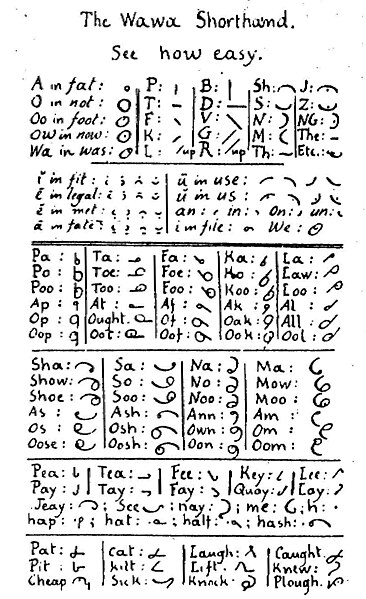 The Wawa Shorthand.
See how easy.
A in fat: P: B: Sh: J:
O in not: T: D: S: Z:
Oo in foot: F: V: N: NG:
Ow in now: K: G: M: The:
Wa in was: L: /up R: /up Th: Etc.:
ĭ in fit: ū in use:
ē in legal: ŭ in us:
ĕ in met: an: in: On: un:
ā in fate: i in file: We:
Pa: Ta: Fa: Ka: La:
Po: Toe: Foe: Ko: Law:
Poo: Too: Foo: Koo: Loo:
Ap: At: Af: Ak: Al:
Op: Ought: Of: Oak: All:
Oop: Oot: Oof: Ook: Ool:
Sha: Sa: Na: Ma:
Show: So: No: Mow:
Shoe: Soo: Noo: Moo:
As: Ash: Ann: Am:
Os: Osh: Own: Om:
Oose: Oosh: Oon: Oom:
Pea: Tea: Fee: Key: Lee:
Pay: Tay: Fay: Quay: Lay:
Jeay: ; See ; nay: ; me: ; h:
hap: ; hat: ; half: ; hash:
Pat: Cat: Laugh: Caught:
Pit: kilt: Lift: Knew:
Cheap Sick: Knock Plough.